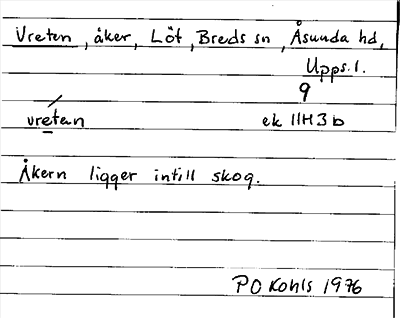 Vreten, åker, Löt, Breds sn, Åsunda hd,
Upps. l.
9
vretan ek 11H3b
Åkern ligger intill skog.
P O Kohls 1976